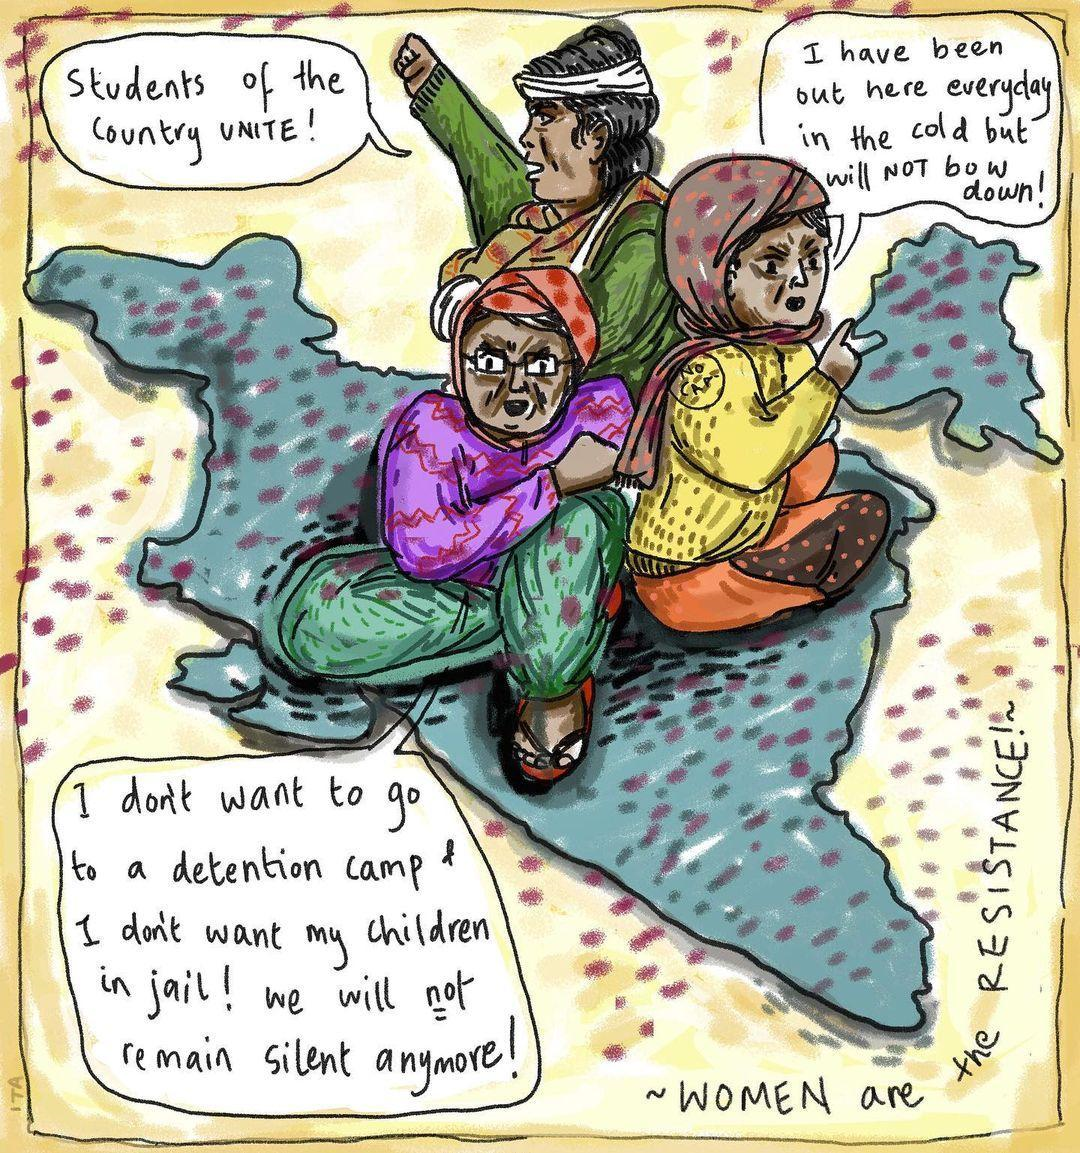 Students of the
Country UNITE!
I have been
out here everyday
in the cold but
will NOT bow
down!
NO
CAA
I don't want to go
to a detention camp &
I don't want my children
in jail! we will not
remain silent anymore!
~WOMEN are
the RESISTANCE!~
ITA